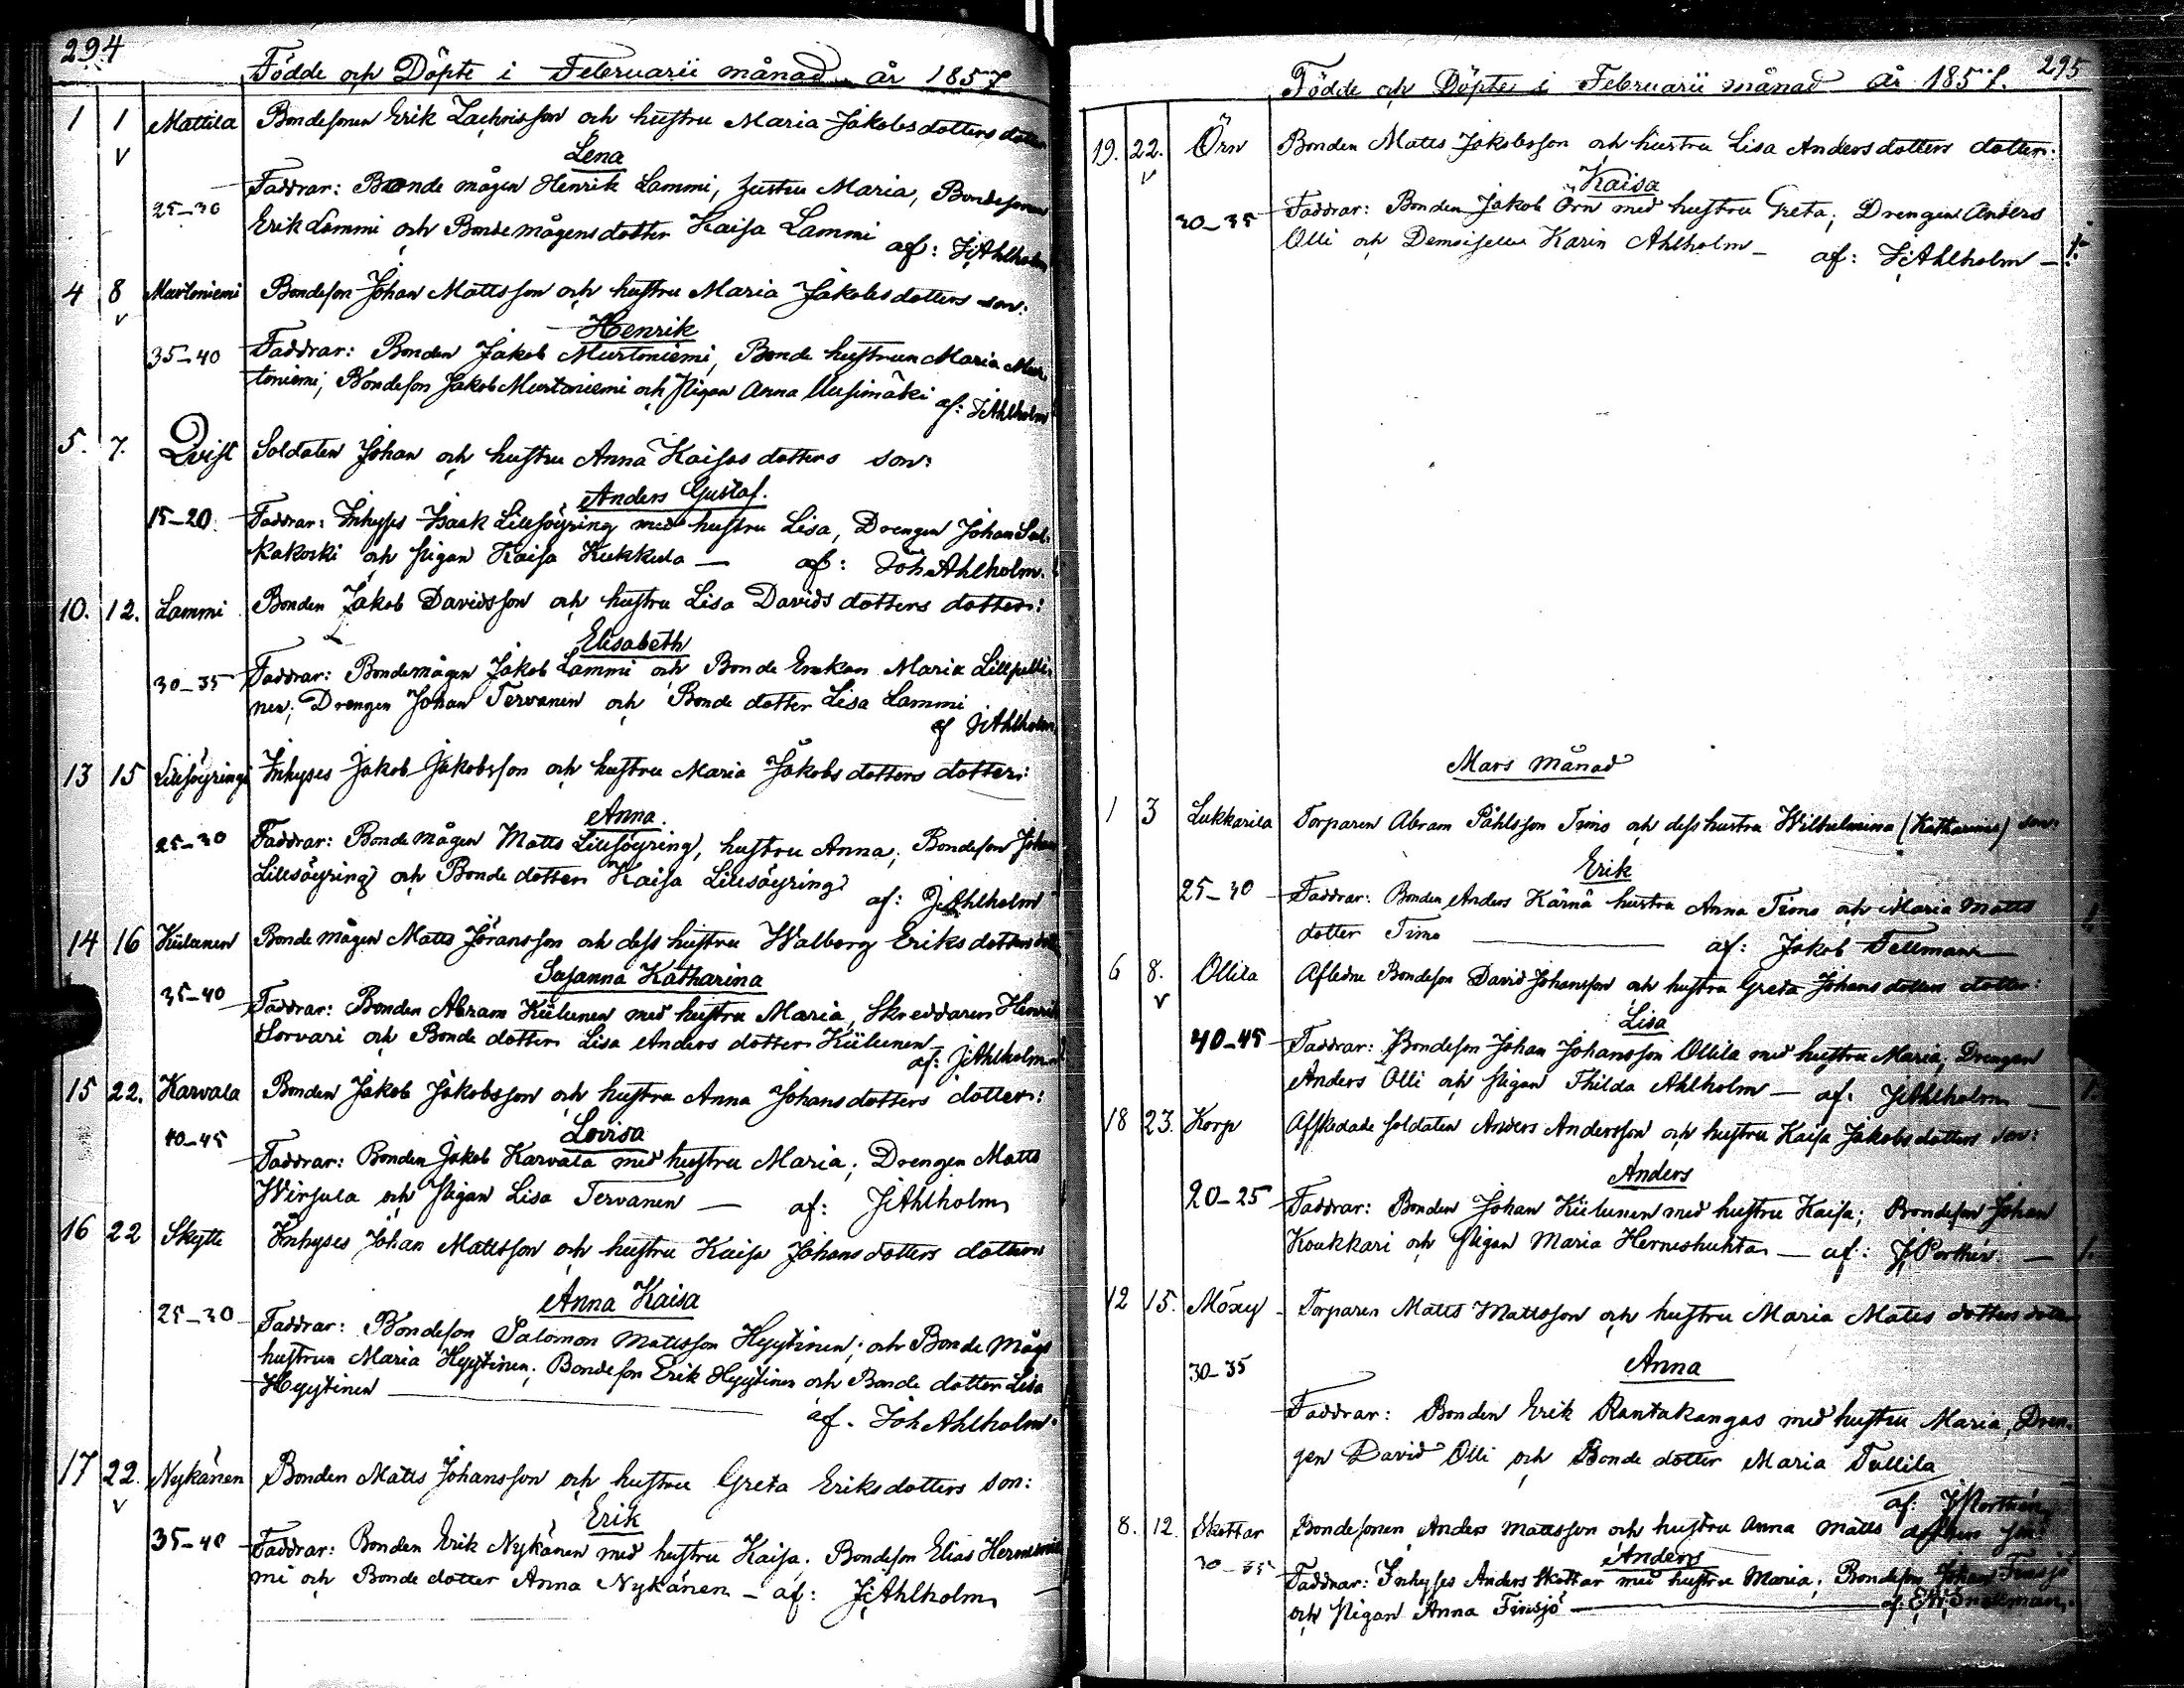 294
Födde och Döpte i Februarii månad år 1857
1 1 Mattila Bondesonen Erik Zachrisson och hustru Maria Jakobsdotters dotter
Lena
25-30 Faddrar: Bonde mågen Henrik Lammi, hustru Maria, Bondesonen
Erik Lammi och Bonde mågens dotter Kaisa Lammi af: J: Ahlholm
4 8 Murtoniemi Bondeson Johan Mattsson och hustru Maria Jakobsdotters son:
Henrik
35-40 Faddrar: Bonden Jakob Murtoniemi, Bonde hustrun Maria Mur-
toniemi; Bondeson Jakob Murtoniemi och Pigan Anna Uusimäki af: J Ahlholm
5. 7. Qvist Soldaten Johan och hustru Anna Kaisas dotters son:
Anders Gustaf.
15-20. Faddrar: Inhyses Isaak Lillsöyring med hustru Lisa, Drengen Johan Sal-
kakoski och Pigan Kaisa Kukkula — af: Joh Ahlholm.
10. 12. Lammi Bonden Jakob Davidsson och hustru Lisa Davids dotters dotter:
Elisabeth
30-35 Faddrar: Bondemågen Jakob Lammi och Bonde Enkan Maria Lillpelli-
nen; Drengen Johan Tervanen och Bonde dotter Lisa Lammi
af J: Ahlholm
13 15 Lillsöyring Inhyses Jakob Jakobsson och hustru Maria Jakobs dotters dotter:
Anna.
25-30 Faddrar: Bonde mågen Matts Lillsöyring, hustru Anna; Bondeson Johan
Lillsöyring och Bonde dotter Kaisa Lillsöyring
af: J: Ahlholm
14 16 Kiilunen Bonde mågen Matts Jöransson och dess hustru Walborg Eriks dotters
Susanna Katharina
35-40 Faddrar: Bonden Abram Kiilunen med hustru Maria, Skreddaren Henrik
Sorvari och Bonde dotter Lisa Anders dotter Kiilunen
af: J: Ahlholm
15 22. Karvala Bonden Jakob Jakobsson och hustru Anna Johansdotters dotter:
Lovisa
40-45 Faddrar: Bonden Jakob Karvala med hustru Maria; Drengen Matts
Wirsula och Pigan Lisa Tervanen — af: J: Ahlholm
16 22 Skytte Inhyses Johan Mattsson och hustru Kaisa Johans dotters dotter
Anna Kaisa
25-30 Faddrar: Bondeson Salomon Mattsson Hyytinen; och Bonde mågs
hustrun Maria Hyytinen; Bondeson Erik Hyytinen och Bonde dotter Lisa
Hyytinen — af. Joh Ahlholm
17 22. Nykänen Bonden Matts Johansson och hustru Greta Eriksdotters son:
Erik
35-40 Faddrar: Bonden Erik Nykänen med hustru Kaisa. Bondeson Elias
mi och Bonde dotter Anna Nykänen — af: J: Ahlholm
295
Födde och Döpte i Februarii månad år 1857.
19. 22. Örn Bonden Matts Jakobsson och hustru Lisa Andersdotters dotter:
Kaisa
30-35 Faddrar: Bonden Jakob Örn med hustru Greta; Drengen Anders
Olli och Demoiselle Karin Ahlholm — af: J: Ahlholm —
Mars månad
1 3 Lukkarila Torparen Abram Påhlsson Timo och dess hustru Wilhelmina (Katharina) son:
Erik
25-30 Faddrar: Bonden Anders Kärnä hustru Anna Timo och Maria Matts
dotter Timo — af: Jakob Fellman
6 8. Ollila Aflidne Bondeson David Johansson och hustru Greta Johans dotters dotter:
Lisa
40-45 Faddrar: Bondeson Johan Johansson Ollila med hustru Maria; Drengen
Anders Olli och Pigan Thilda Ahlholm — af: J: Ahlholm —
18 23. Korp Afskedade soldaten Anders Andersson och hustru Kaisa Jakobsdotters son:
Anders
20-25 Faddrar: Bonden Johan Kiilunen med hustru Kaisa; Bondeson Johan
Koukkari och Pigan Maria Herneshuhta — af: J: Porthén. —
12 15. Möxy Torparen Matts Mattsson och hustru Maria Matts dotters dotter
Anna
30-35
Faddrar: Bonden Erik Rantakangas med hustru Maria, Dren-
gen David Olli och Bonde dotter Maria Tullila
af: J Porthén
8. 12. Skottar Bondesonen Anders Mattsson och hustru Anna Matts dotters son
Anders
30-35 Faddrar: Inhyses Anders Skottar med hustru Maria; Bondeson Johan Finsjö
och Pigan Anna Finsjö — af: